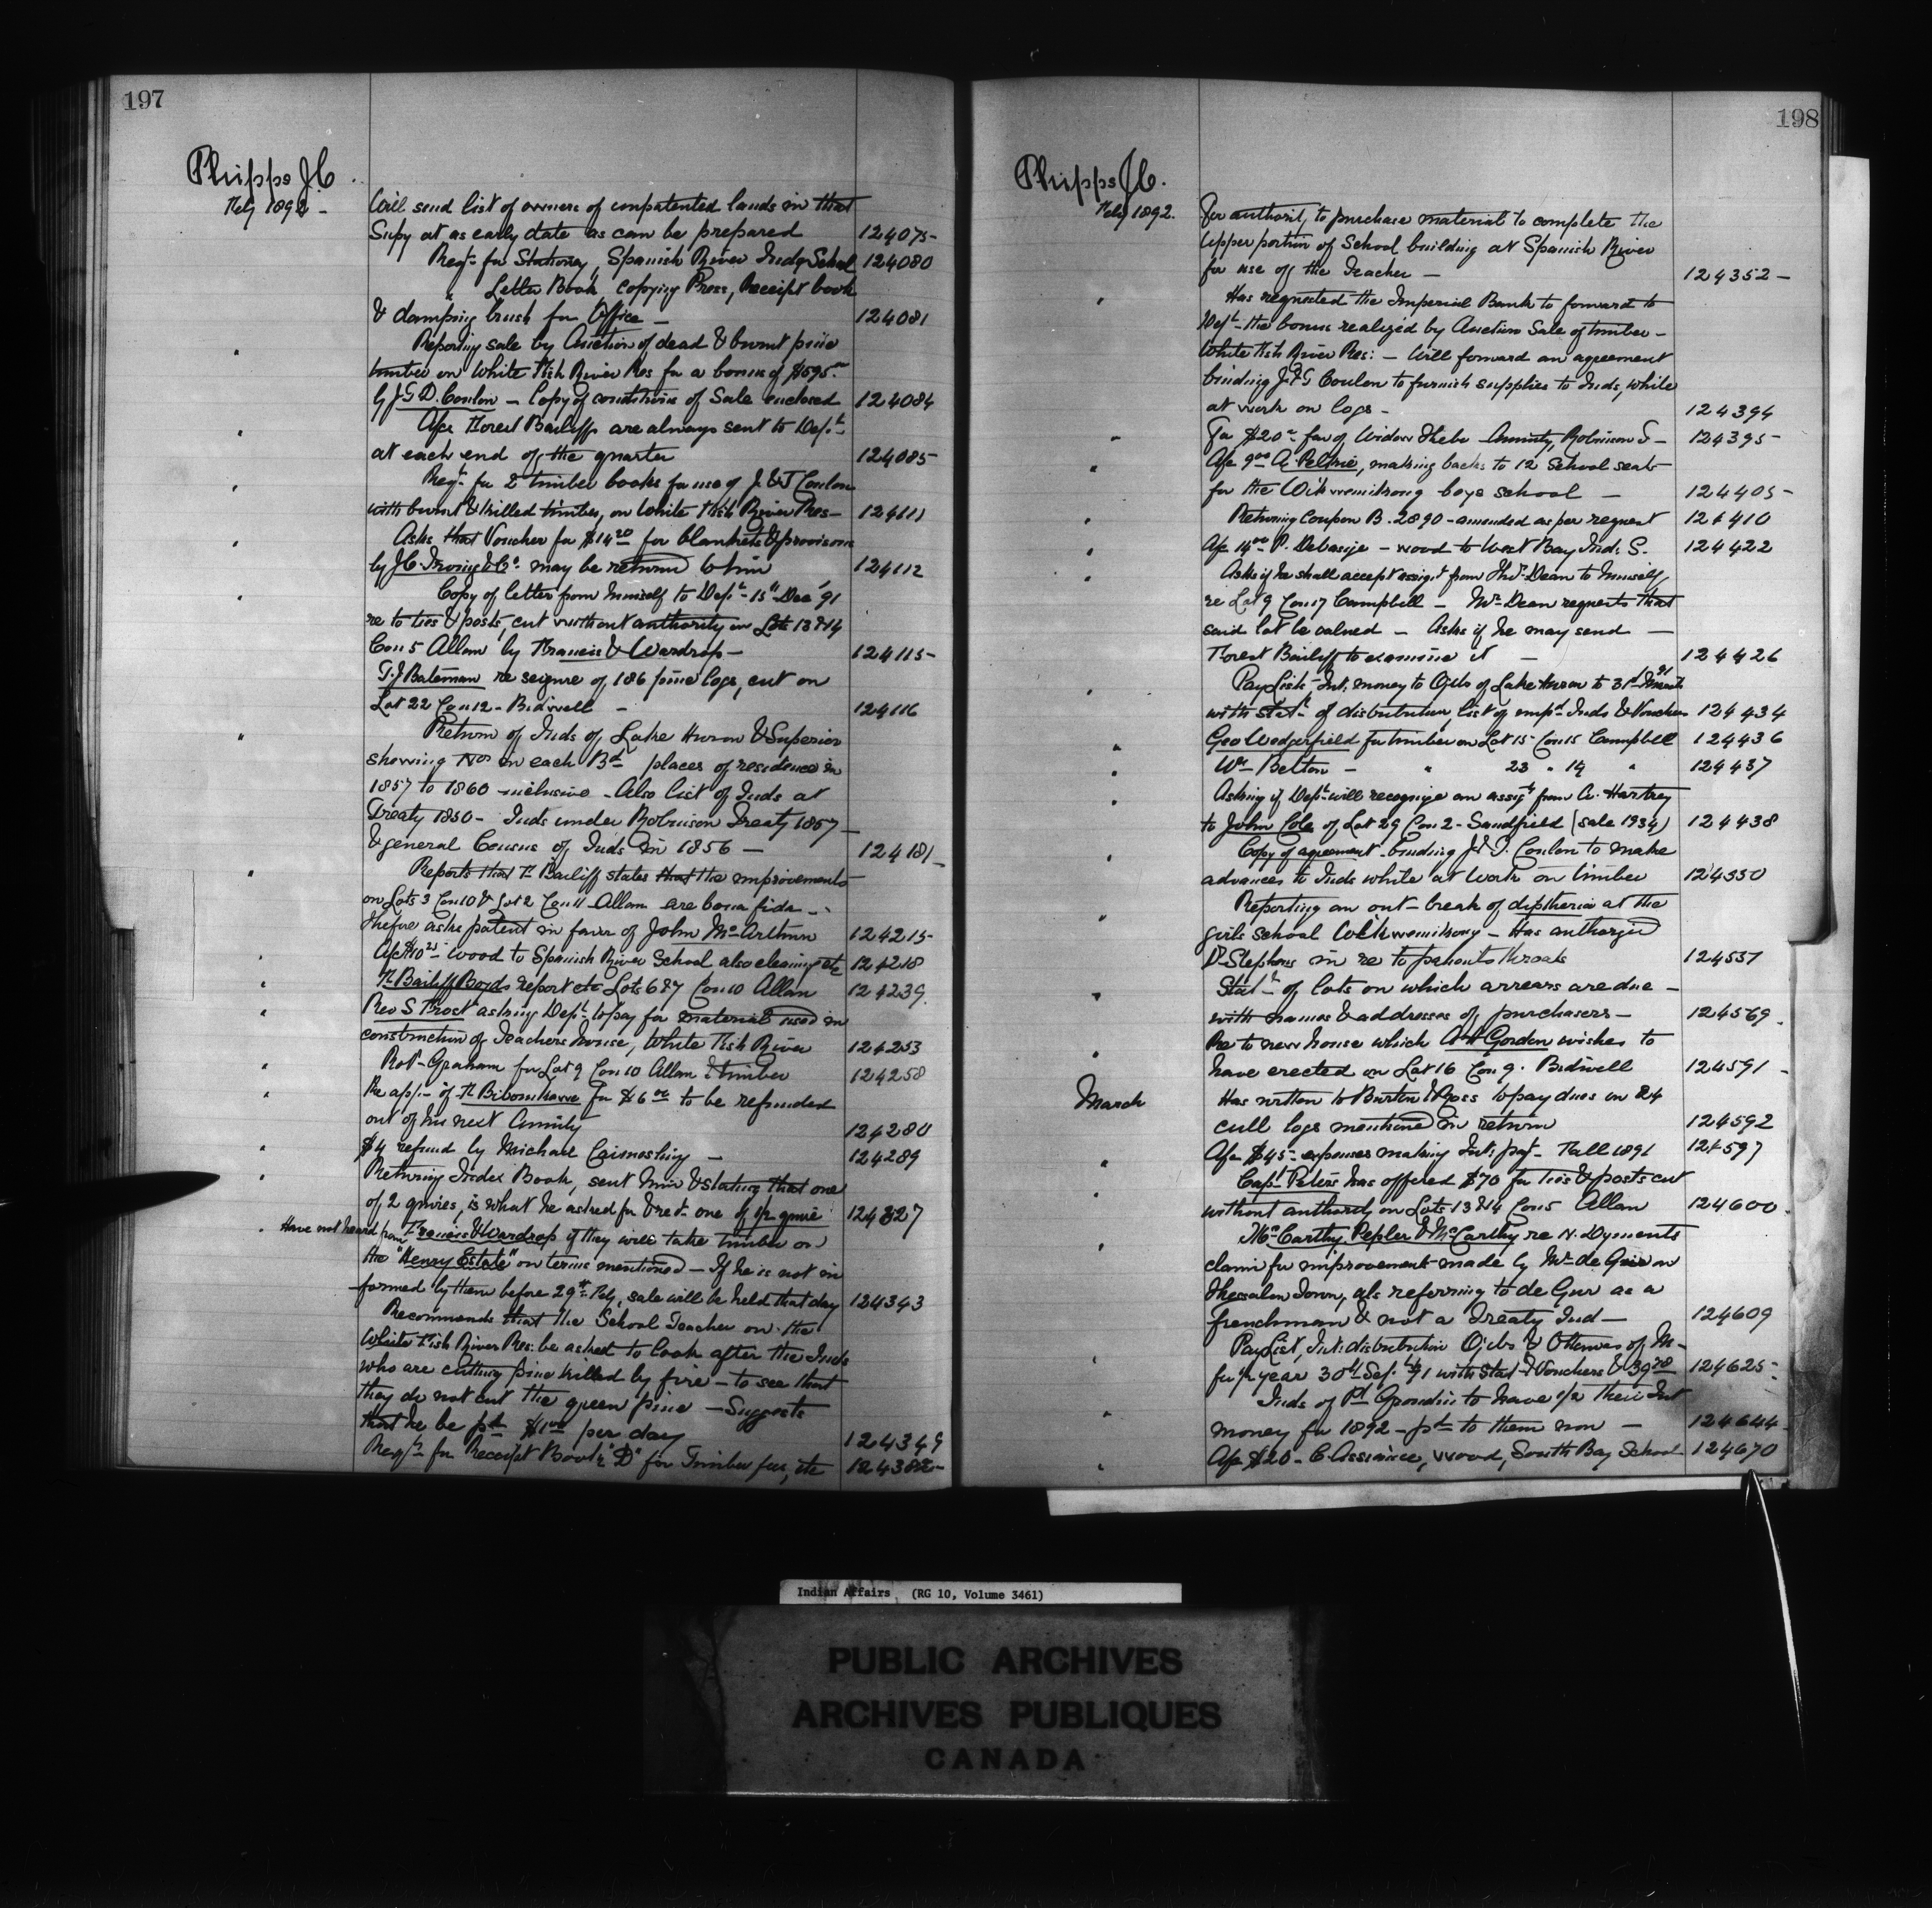 197
Phipps J.C.
Feby 1892 -
Will send list of owners of unpatented lands in that
Supy at as early date as can be prepared 124075-
Reqn for Stationery, Spanish River Indn School 124080
" Letter Book Copying Press, Receipt book
& damping brush for Office - 124081
" Reporting sale by Auction of dead & burnt pine
timber on White Fish River Res for a bonus of $595.00
by J & D. Conlon - Copy of conditions of Sale enclosed 124084
" A/cs Forest Bailiffs are always sent to Dept
at each end of the quarter 124085-
" Reqn for 2 timber books for use of J. & T Conlon
with burnt & killed timber, on White Fish River Res- 124111
" Asks that Voucher for $14 20 for blankets & provisions
by J.C. Irving & Co. may be returned to him 124112
" Copy of letter from himself to Dept- 15" Dec '91
re to ties & posts, cut without authority on Lots 13 & 14
Con 5 Allan by Francis & Wardrop - 124115-
T.J Bateman re seizure of 186 pine logs, cut on
Lot 22 Con 12 - Bidwell - 124116
" Return of Inds of Lake Huron & Superior
showing Nos in each Bd places of residence in
1857 to 1860 inclusive - Also list of Inds at
Treaty 1850 - Inds under Robinson Treaty 1857 -
& general Census of Inds in 1856 - 124181-
" Reports that F. Bailiff states that the improvements
on Lots 3 Con 10 & Lot 2 Con 11 Allan are bona fide -
thefore asks patent in favor of John McArthur 124215-
" A/c $10 25 wood to Spanish River School also cleaning etc 124218
" F. Bailiff Boyds report etc Lots 6 & 7 Con 10 Allan 124239.
" Rev S Frost asking Dept to pay for material used in
construction of Teachers house, White Fish River 124253
" Robt Graham for Lot 9 Con 10 Allan & timber 124258
" Re appn of for $6 00 to be refunded
out of his next Annuity 124280
" $4 refund by Michael - 124289
" Returning Index Book, sent him & stating that one
of 2 quires, is what he asked for & recd one of 1/2 quire 124327
" Have not heard from Francis & Wardrop if they will take timber on
the "Henry Estate" on terms mentioned - If he is not in
formed by them before 29th Feby, sale will be held that day 124343
Recommends that the School Teacher on the
White Fish River Res: be asked to look after the Inds
who are cutting pine killed by fire - to see that
they do not cut the green pine - Suggests
that he be pd $1 00 per day 124349
Reqn for Receipt Book "D" for Timber fees, etc 124382-
198
Phipps J.C.
Feby 1892.
For authority to purchase material to complete the
Upper portion of School building at Spanish River
for use of the Teacher - 124352 -
" Has requested the Imperial Bank to forward to
Dept- the bonus realized by Auction Sale of timber -
White Fish River Res: - Will forward an agreement
binding J & T Conlon to furnish supplies to Inds, while
at work on logs - 124394
" For $20 - fav of Widow Annuity, Robinson T - 124395-
" A/c 9 00 A. Peltrie, making backs to 12 School seats
for the Wikwemikong boys school - 124405 -
" Returning Coupon B. 2890 - amended as per request 124410
" A/c 14 00 P. Debassige - wood to West Bay Ind. S. 124422
" Asks if he shall accept assigt from Thos Dean to himself
re Lot 9 Con 17 Campbell - Mr. Dean requests that
said lot be valued - Asks if he may send -
Forest Bailiff to examine it - 124426
" Pay List, Int. money to Ojibs of Lake Huron to 31st
with Statt of distribution, list of Inds & Vouchers 124434
" Geo Wedgerfield for timber on Lot 15 - Con 15 Campbell 124436
" Wm Belton - " 23 " 14 " 124437
" Asking if Dept- will recognize an assigt from A. Hartrey
to John Cole of Lot 29 Con 2 - Sandfield (sale 1934) 124438
" Copy of agreement - binding J & T. Conlon to make
advances to Inds while at work on timber 124550
" Reporting an out-break of diptheria at the
girls school Wikwemikong - Has authorized
Dr Stephens in re to patients throats 124537
" Statt of lots on which arrears are due -
with names & addresses of purchasers - 124569.
" Re to new house which A H Gordon wishes to
have erected on Lot 16 Con 9. Bidwell 124591 -
March
Has written to Burton & Bross to pay dues on 24
cull logs mentioned in return 124592
" A/c $45 - expenses making Int: payt - Fall 1891 124597
" Capt Peters has offered $70 for ties & posts cut
without authority on Lots 13 & 14 Con 5 Allan 124600.
" McCarthy Pepler & McCarthy re N. Dyments
claim for improvements made by Mr de Geer on
Thessalon Town, als referring to de Gur as a
frenchman & not a Treaty Ind - 124609
" Pay List, Int: distribution Ojibs & Ottawas of M -
for 1/2 year 30th Sept 91 with Stat & Vouchers & 39 78 124625 -
" Inds of Pt Grondin to have 1/2 their Int
money for 1892 - pd to them now - 124644
" A/c $20 - C. Assinice, wood, South Bay School 124670
Indian Affairs (RG 10, Volume 3461)
PUBLIC ARCHIVES
ARCHIVES PUBLIQUES
CANADA